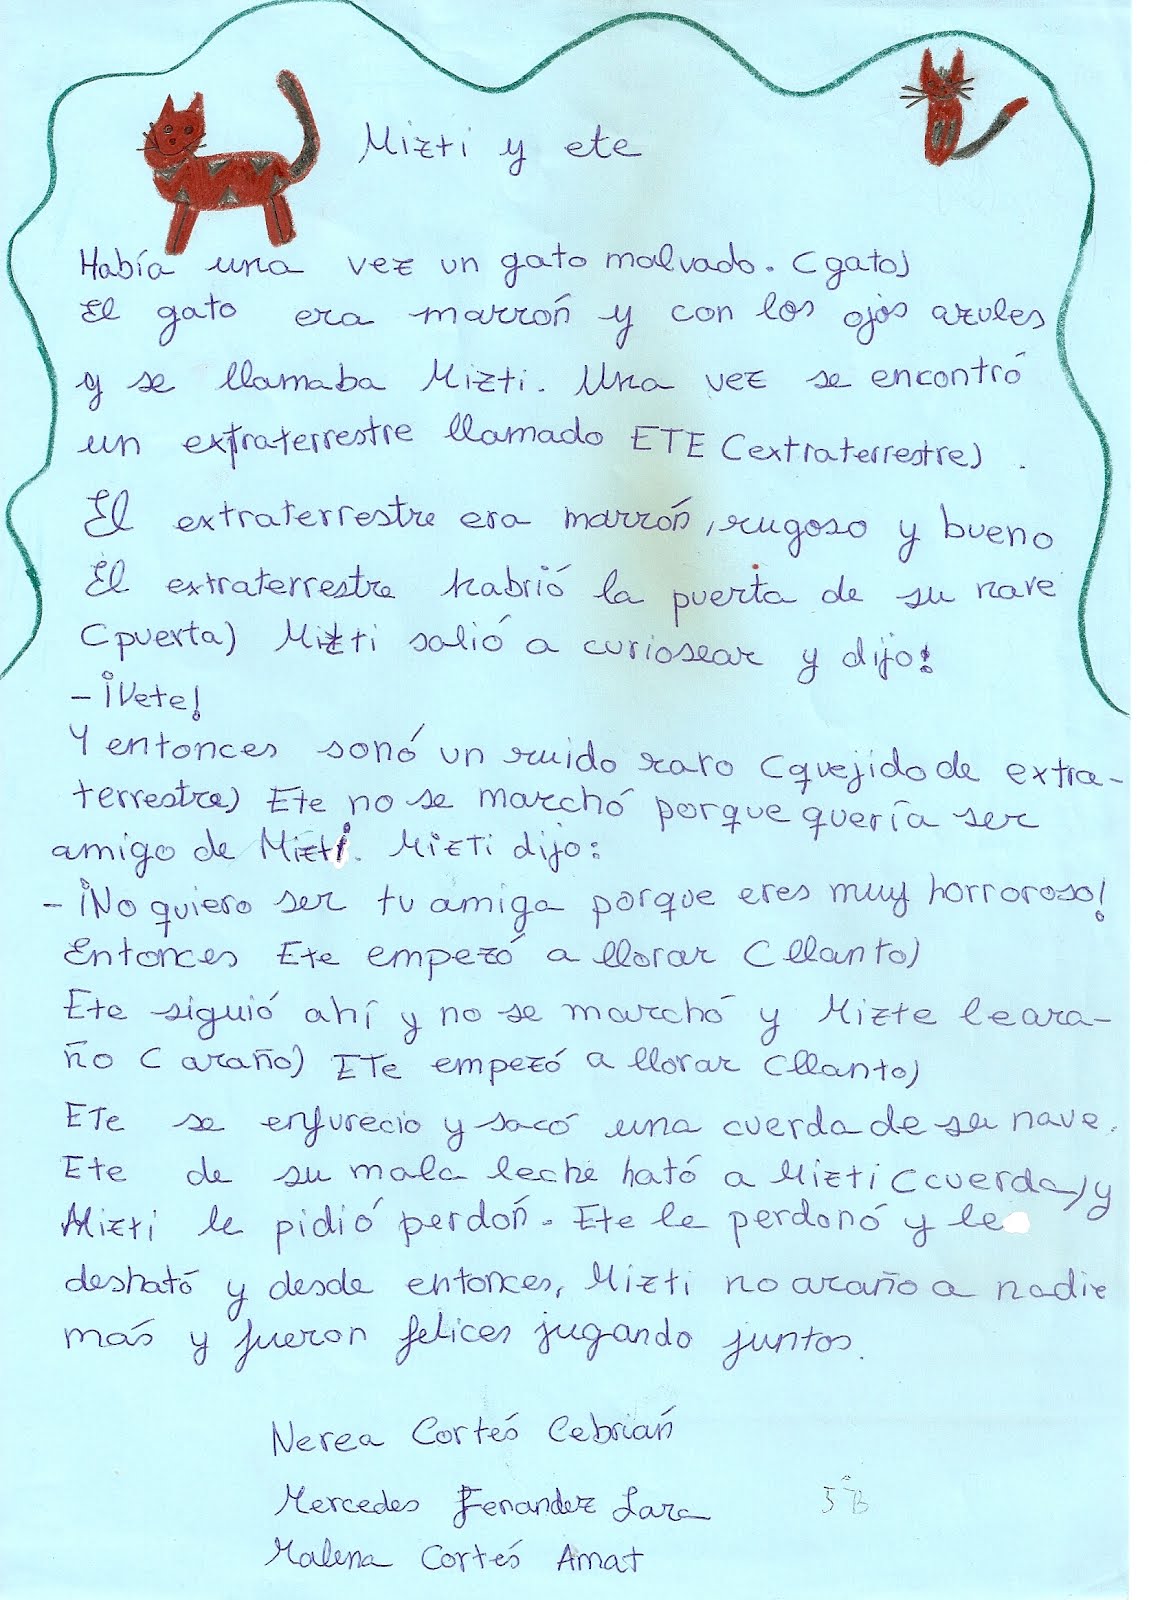 Mizti y ete
Había una vez un gato malvado. (gato)
El gato era marrón y con los ojos azules
y se llamaba Mizti. Una vez se encontró
un extraterrestre llamado ETE (extraterrestre).
El extraterrestre era marrón, rugoso y bueno
El extraterrestre habrió la puerta de su nave
(puerta) Mizti salió a curiosear y dijo:
- ¡Vete!
Y entonces sonó un ruido raro (quejido de extra-
terrestre) Ete no se marchó porque quería ser
amigo de Mizti. Mizti dijo:
- ¡No quiero ser tu amiga porque eres muy horroroso!
Entonces Ete empezó a llorar (llanto)
Ete siguió ahí y no se marchó y Mizte le ara-
ño (araño) ETe empezó a llorar (llanto)
ETe se enfurecio y sacó una cuerda de su nave.
Ete de su mala lecheható a Mizti (cuerda) y
Mizti le pidió perdón. Ete le perdonó y le
desható y desde entonces, Mizti no araño a nadie
más y fueron felices jugando juntos.
Nerea Cortés Cebrián
Mercedes Fenandez Lara
5ºB
Malena Cortés Amat